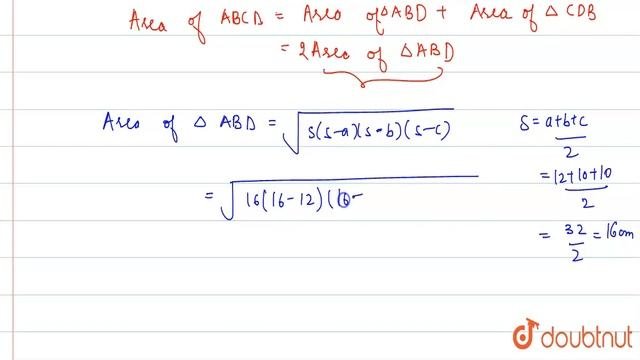 Area of ABCD = Area of △ABD + Area of △ CDB
= 2 Area of △ABD
Area of △ ABD = √s(s-a)(s-b)(s-c)
s = a+b+c/2
= √16(16-12)(16-
= 12+10+10/2
= 32/2 = 16cm
doubtnut